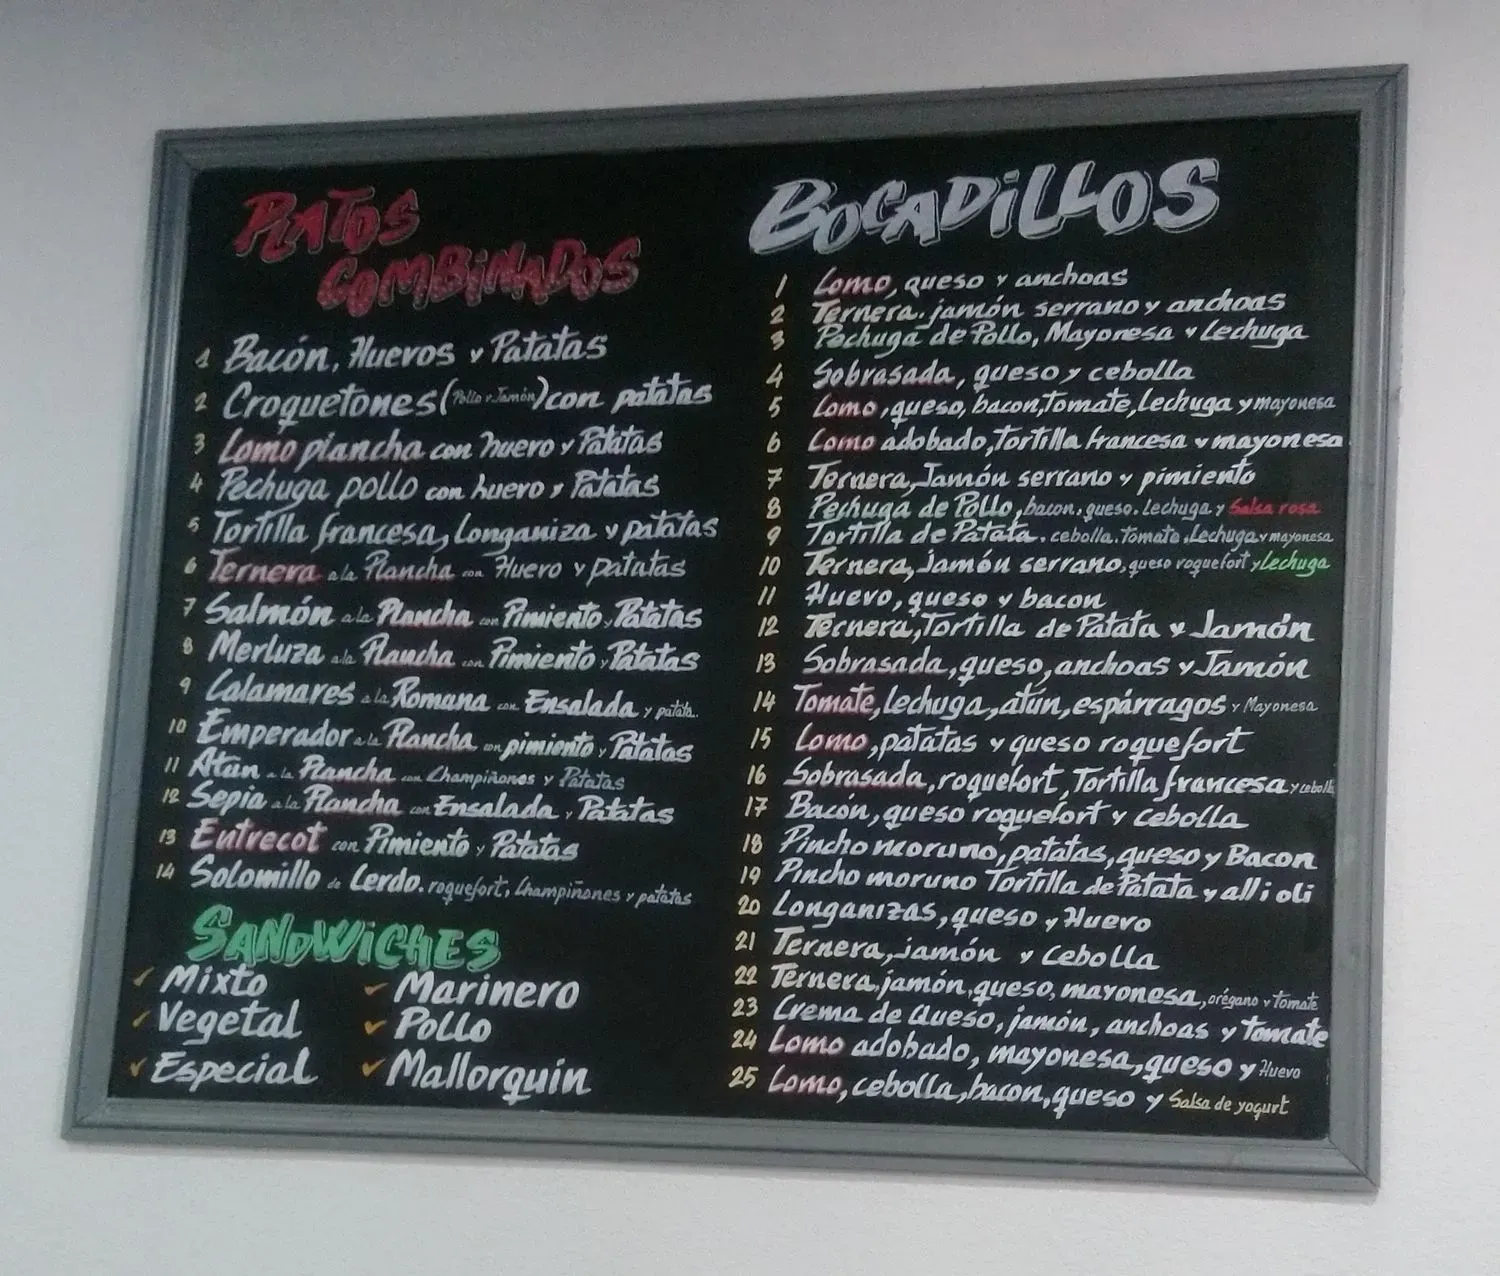 PLATOS
COMBINADOS
1 Bacón, Huevos y Patatas
2 Croquetones (Pollo y Jamón) con patatas
3 Lomo plancha con huevo y Patatas
4 Pechuga pollo con huevo y Patatas
5 Tortilla francesa, Longaniza y patatas
6 Ternera a la Plancha con Huevo y patatas
7 Salmón a la Plancha con Pimiento y Patatas
8 Merluza a la Plancha con Pimiento y Patatas
9 Calamares a la Romana con Ensalada y patata.
10 Emperador a la Plancha con pimiento y Patatas
11 Atún a la Plancha con Champiñones y Patatas
12 Sepia a la Plancha con Ensalada y Patatas
13 Entrecot con Pimiento y Patatas
14 Solomillo de Cerdo. roquefort, Champiñones y patatas
SANDWICHES
Mixto
Vegetal
Especial
Marinero
Pollo
Mallorquin
BOCADILLOS
1 Lomo, queso y anchoas
2 Ternera, jamón serrano y anchoas
3 Pechuga de Pollo, Mayonesa y Lechuga
4 Sobrasada, queso y cebolla
5 Lomo, queso, bacon, Tomate, Lechuga y mayonesa
6 Lomo adobado, Tortilla francesa y mayonesa
7 Ternera, Jamón serrano y pimiento
8 Pechuga de Pollo, bacon, queso, Lechuga y Salsa rosa
9 Tortilla de Patata, cebolla, Tomate, Lechuga y mayonesa
10 Ternera, Jamón serrano, queso roquefort y Lechuga
11 Huevo, queso y bacon
12 Ternera, Tortilla de Patata y Jamón
13 Sobrasada, queso, anchoas y Jamón
14 Tomate, Lechuga, atún, espárragos y Mayonesa
15 Lomo, patatas y queso roquefort
16 Sobrasada, roquefort, Tortilla francesa y cebolla
17 Bacón, queso roquefort y cebolla
18 Pincho moruno, patatas, queso y Bacon
19 Pincho moruno Tortilla de Patata y all i oli
20 Longanizas, queso y Huevo
21 Ternera, jamón y Cebolla
22 Ternera, jamón, queso, mayonesa, orégano y Tomate
23 Crema de Queso, jamón, anchoas y Tomate
24 Lomo adobado, mayonesa, queso y Huevo
25 Lomo, cebolla, bacon, queso y Salsa de yogurt